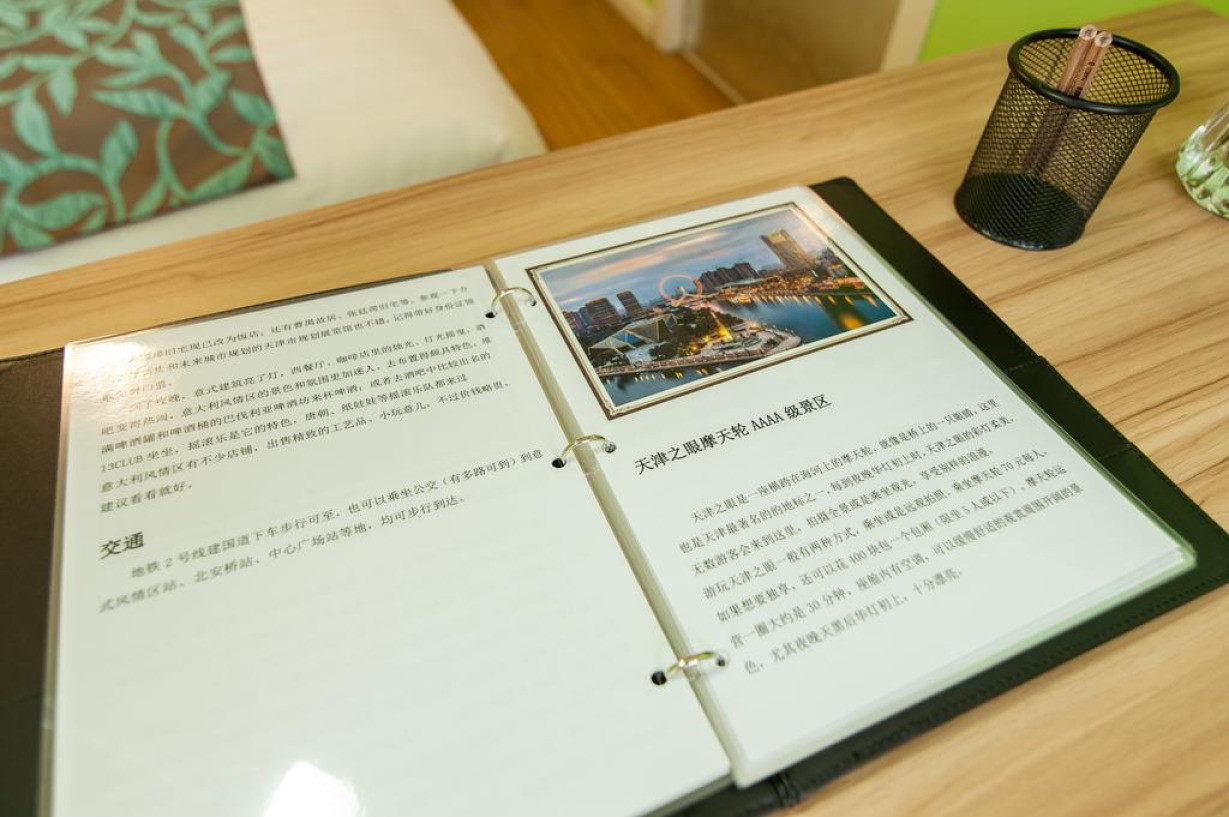 港旧宅现已改为饭店；还有曹禺故居、张廷谔旧宅等。参观一下介
历史和未来城市规划的天津市规划展览馆也不错，记得带好身份证领
取免费门票。
到了夜晚，意式建筑亮了灯，西餐厅、咖啡店里的烛光、灯光摇曳，酒
吧变得热闹，意大利风情区的景色和氛围更加迷人。去布置得颇具特色、堆
满啤酒罐和啤酒桶的巴伐利亚啤酒坊来杯啤酒；或者去酒吧中比较出名的
13CLUB 坐坐，摇滚乐是它的特色，唐朝、纸娃娃等摇滚乐队都来过
意大利风情区有不少店铺，出售精致的工艺品、小玩意儿，不过价钱略贵，
建议看看就好。
交通
地铁 2 号线建国道下车步行可至，也可以乘坐公交（有多路可到）到意
式风情区站、北安桥站、中心广场站等地，均可步行到达。
天津之眼摩天轮 AAAA 级景区
天津之眼是一座横跨在海河上的摩天轮，就像是桥上的一只眼睛，这里
也是天津最著名的的地标之一，每到夜晚华灯初上时，天津之眼的彩灯柔美，
无数游客会来到这里，拍摄全景或是乘坐观光，享受别样的浪漫。
游玩天津之眼一般有两种方式，乘坐或是远观拍照。乘坐摩天轮 70 元每人，
如果想要独享，还可以花 400 块包一个包厢（限坐 5 人或以下）。摩天轮运
营一圈大约是 30 分钟，座舱内有空调，可以缓慢舒适的观赏周围开阔的景
色，尤其夜晚天黑后华灯初上，十分漂亮。